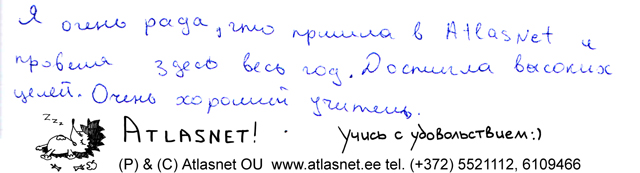 Я очень рада, что пришла в AtlasNet и
провела здесь весь год. Достигла высоких
целей. Очень хороший учитель.
Zzz
ATLASNET! Учись с удовольствием:)
(P) & (C) Atlasnet OU www.atlasnet.ee tel. (+372) 5521112, 6109466